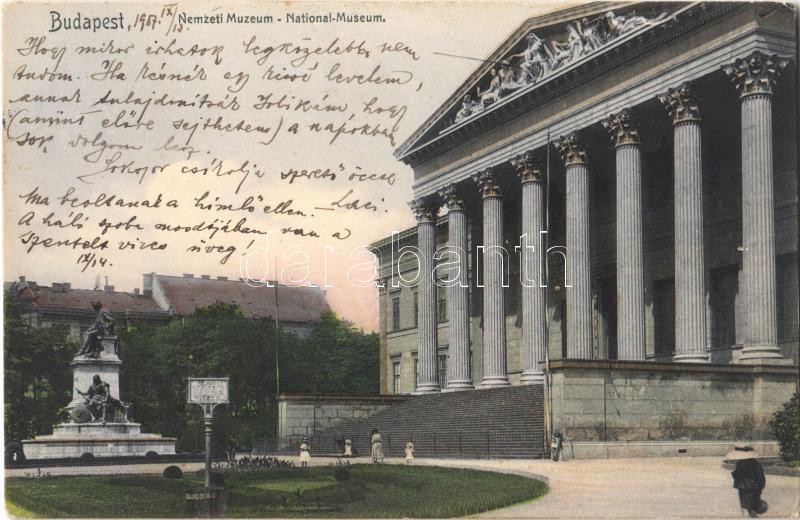 Budapest, 1907. IX/13.
Nemzeti Muzeum - National-Museum.
Hogy mikor irhatok legközelebb, nem
tudom. Ha késnék egy kissé levelem,
annak tulajdonitsák Zolikám, hogy
(amint előre sejthetem) a napokban
sok dolgom lesz.
Sokszor csókolja szerető öccse
Laci.
Ma beoltanak a himlő ellen.
A háló szoba van a
szentelt vizes üveg!
IX/14.
darabanth